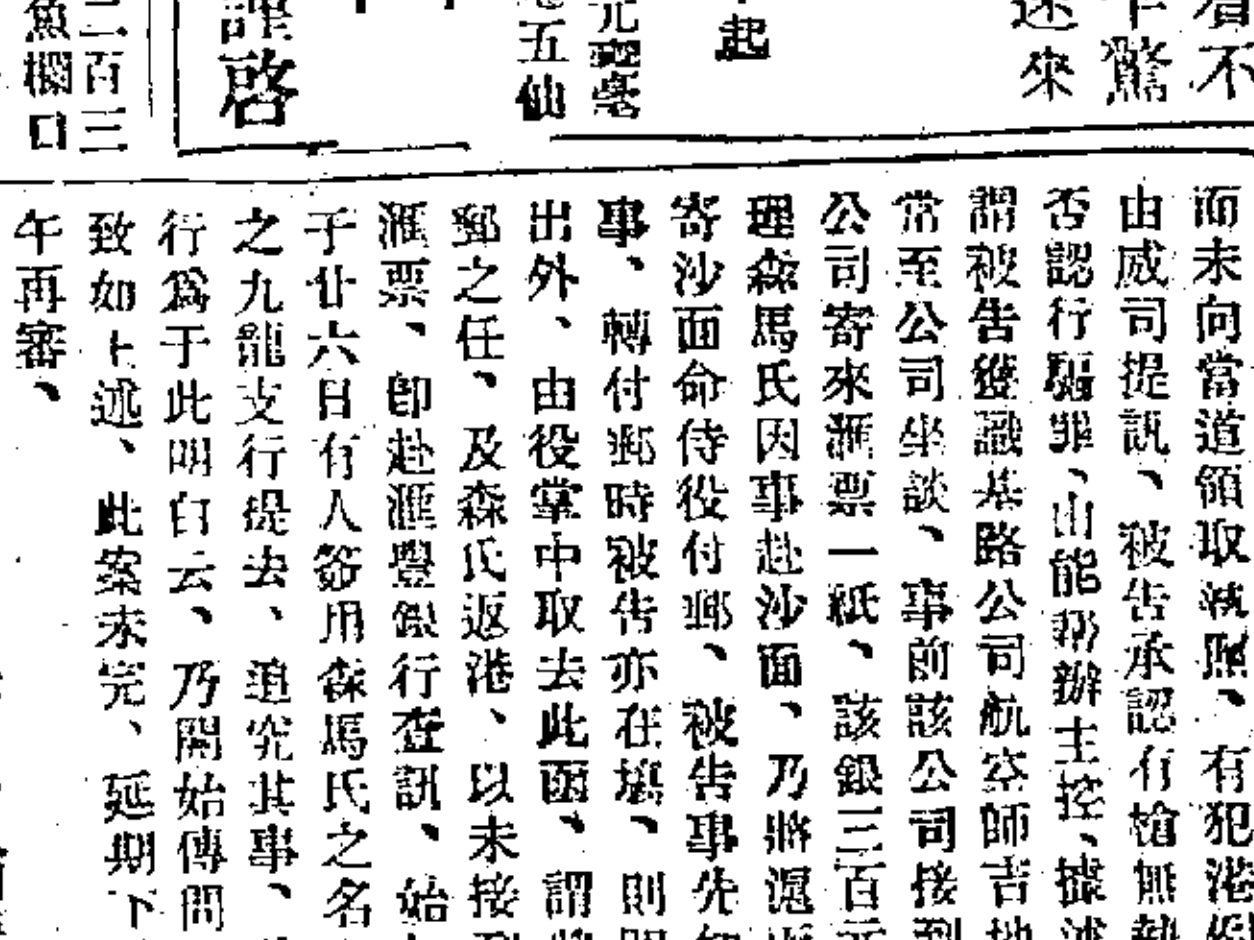 看不
乍驚
速來
起
元壹毫
五仙
謹啓
二百三
魚欄口
而未向當道領取執照、有犯港
由威司提訊、被告承認有槍無執
否認行騙罪、由能邦辦主控、據述
謂被告獲識基路公司航空師吉地
常至公司坐談、事前該公司接到
公司寄來滙票一紙、該銀三百元
理森馬氏因事赴沙面、乃將滙
寄沙面命侍役付郵、被告事先
事、轉付郵時被告亦在塲、則
出外、由役掌中取去此函、謂
郵之任、及森氏返港、以未接到
滙票、卽赴滙豐銀行查訊、始
于廿六日有人簽用森馬氏之名
之九龍支行提去、追究其事、
行爲于此明白云、乃開始傳問
致如上述、此案未完、延期下
午再審、